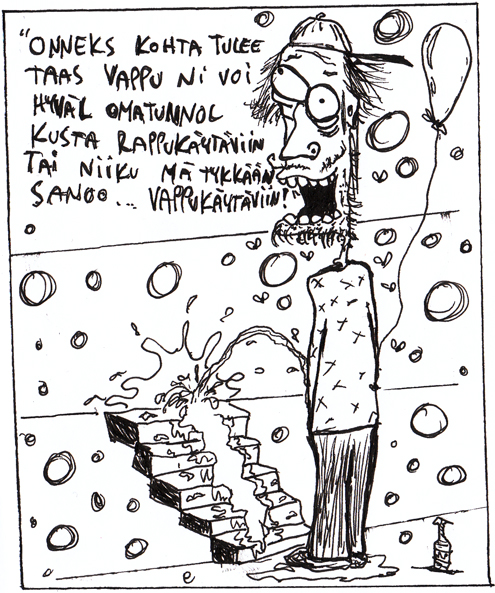 "ONNEKS KOHTA TULEE
TAAS VAPPU NI VOI
HYVÄL OMATUNNOL
KUSTA RAPPUKÄYTÄVIIN
TAI NIIKU MÄ TYKKÄÄN
SANOO... VAPPUKÄYTÄVIIN!"